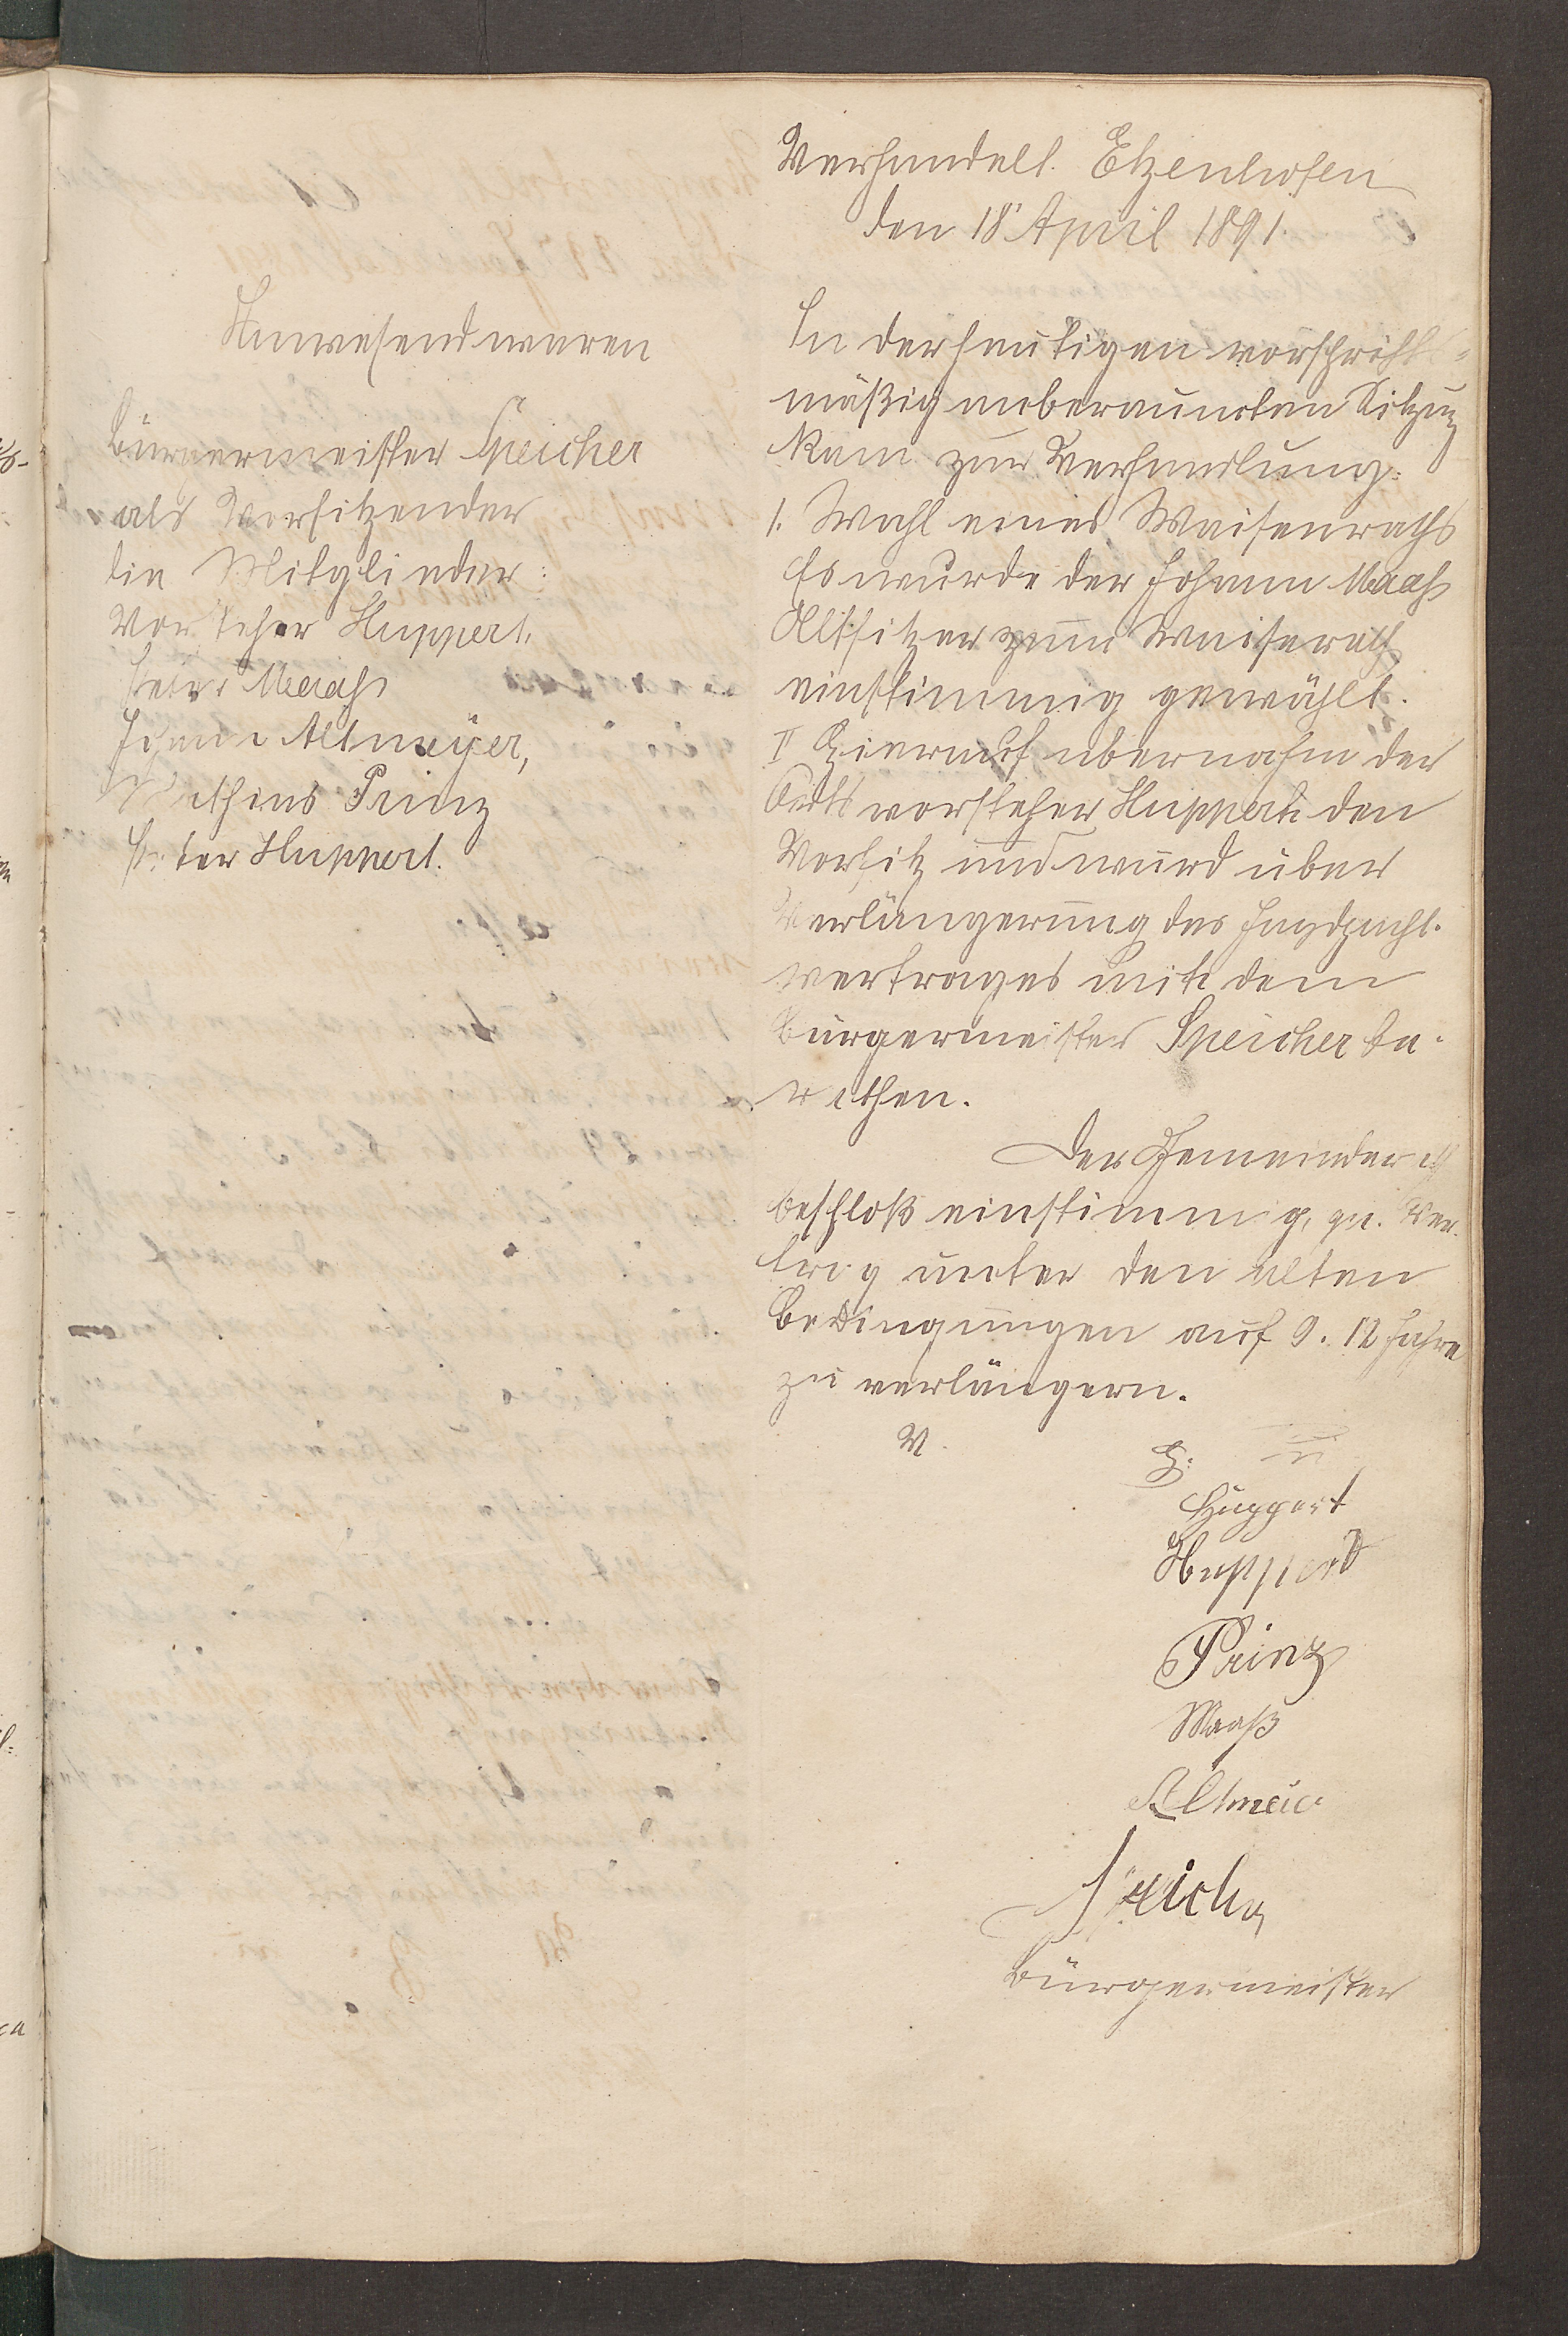 Verhandelt. Etzenhofen
den 18' April 1891.
Anwesend waren
Bürgermeister Speicher
als Vorsitzender
die Mitglieder:
Vorsteher Huppert.
Peter Maaß
Johann Altmeyer,
Mathias Prinz
Peter Huppert.
In der heutigen vorschrifts-
mäßig anberaumten Sitzung
kam zur Verhandlung:
1. Wahl eines Waisenraths
Es wurde der Johann Maaß
Altsitzer zum Waiserath
einstimmig gewählt.
II Hierauf übernahm der
Ortsvorsteher Huppert den
Vorsitz und wurd über
Verlängerung des Jagdpacht-
vertrages mit dem
Bürgermeister Speicher be-
rathen.
Der Gemeinderath
beschloß einstimmig, qu. Ver-
trag unter den alten
Bedingungen auf 9. 12 Jahre
zu verlängern.
V. g. u.
Huppert
Huppert
Prinz
Maaß
Altmeier
Speicher
Bürgermeister